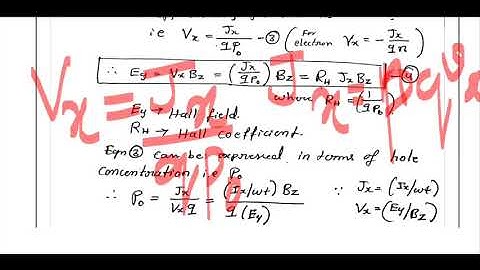 i.e Vx = Jx / qPo - ③ (For electron Vx = - Jx / qn)
∴ Ey = Vx Bz = (Jx / qPo) Bz = RH Jx Bz - ④
where RH = (1 / qPo)
Ey → Hall field.
RH → Hall coefficient.
Eqn ③ can be expressed in terms of hole
concentration i.e Po
∴ Po = Jx / Vx q = (Ix/wt) Bz / q (Ey) ∵ Jx = (Ix/wt)
Vx = (Ey/Bz)
Vx = Jx / qPo
Jx = P q Vx